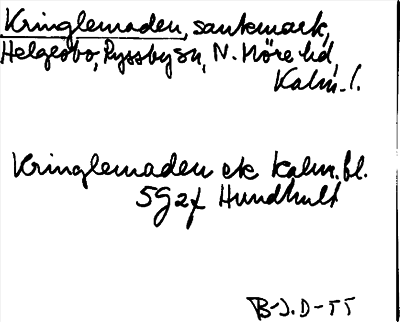 Kringlemaden, sankmark,
Helgerbo, Ryssby sn, N. Möre hd,
Kalm. l.
Kringlemaden ek Kalm. bl.
5G2f Hundhult
B-J.D-TT